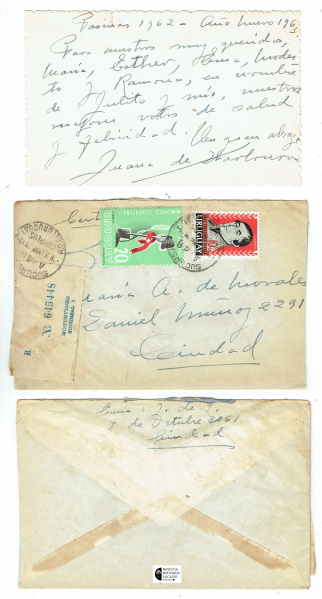 Pascuas 1962 - Año Nuevo 196
Para nuestros muy queridos,
María, Esther, Elena, Modes
to y Ramona, en nombre
de Julito y mío, nuestros
mejores votos de salud
y felicidad. Un gran abrazo
Juana de
Cert
CENTENARIO COLONIA
20
URUGUAY
SUCURSAL
No 645448
MONTEVIDEO
SUCURSAL
R
María A. de Morales
Daniel Muñoz 2291
Ciudad
J. de I.
8 de Octubre 3061
Ciudad
BANCO de
HISTORIAS
LOCALES